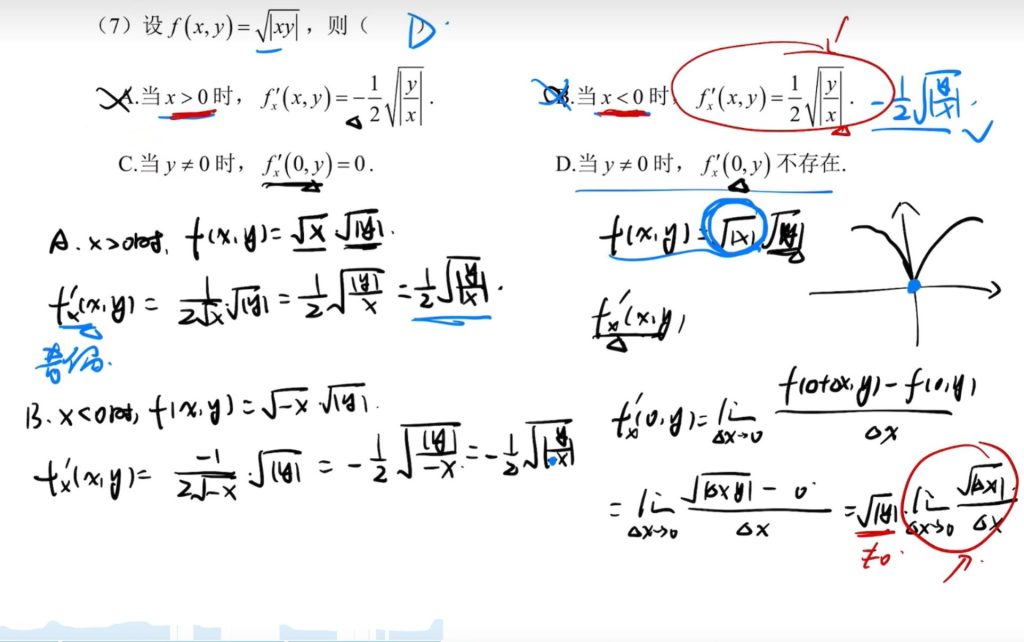 （7）设 f(x,y)=√|xy|，则（ D ）
A.当 x>0 时，f′ₓ(x,y)=-1/2 √|y/x|.
B.当 x<0 时，f′ₓ(x,y)=1/2 √|y/x|. -1/2 √|y/x|.
C.当 y≠0 时，f′ₓ(0,y)=0.
D.当 y≠0 时，f′ₓ(0,y) 不存在.
A. x>0时, f(x,y)=√x √|y|.
f′ₓ(x,y)= 1/(2√x) √|y| = 1/2 √(|y|/x) = 1/2 √|y/x|.
B. x<0时, f(x,y)=√-x √|y|.
f′ₓ(x,y)= -1/(2√-x) · √|y| = -1/2 √(|y|/-x) = -1/2 √|y/x|
f(x,y)=√|x| √|y|
f′ₓ(x,y)
f′ₓ(0,y)= lim Δx→0 (f(0+Δx,y)-f(0,y))/Δx
= lim Δx→0 (√|Δxy| - 0)/Δx = √|y| · lim Δx→0 √|Δx|/Δx
≠0.